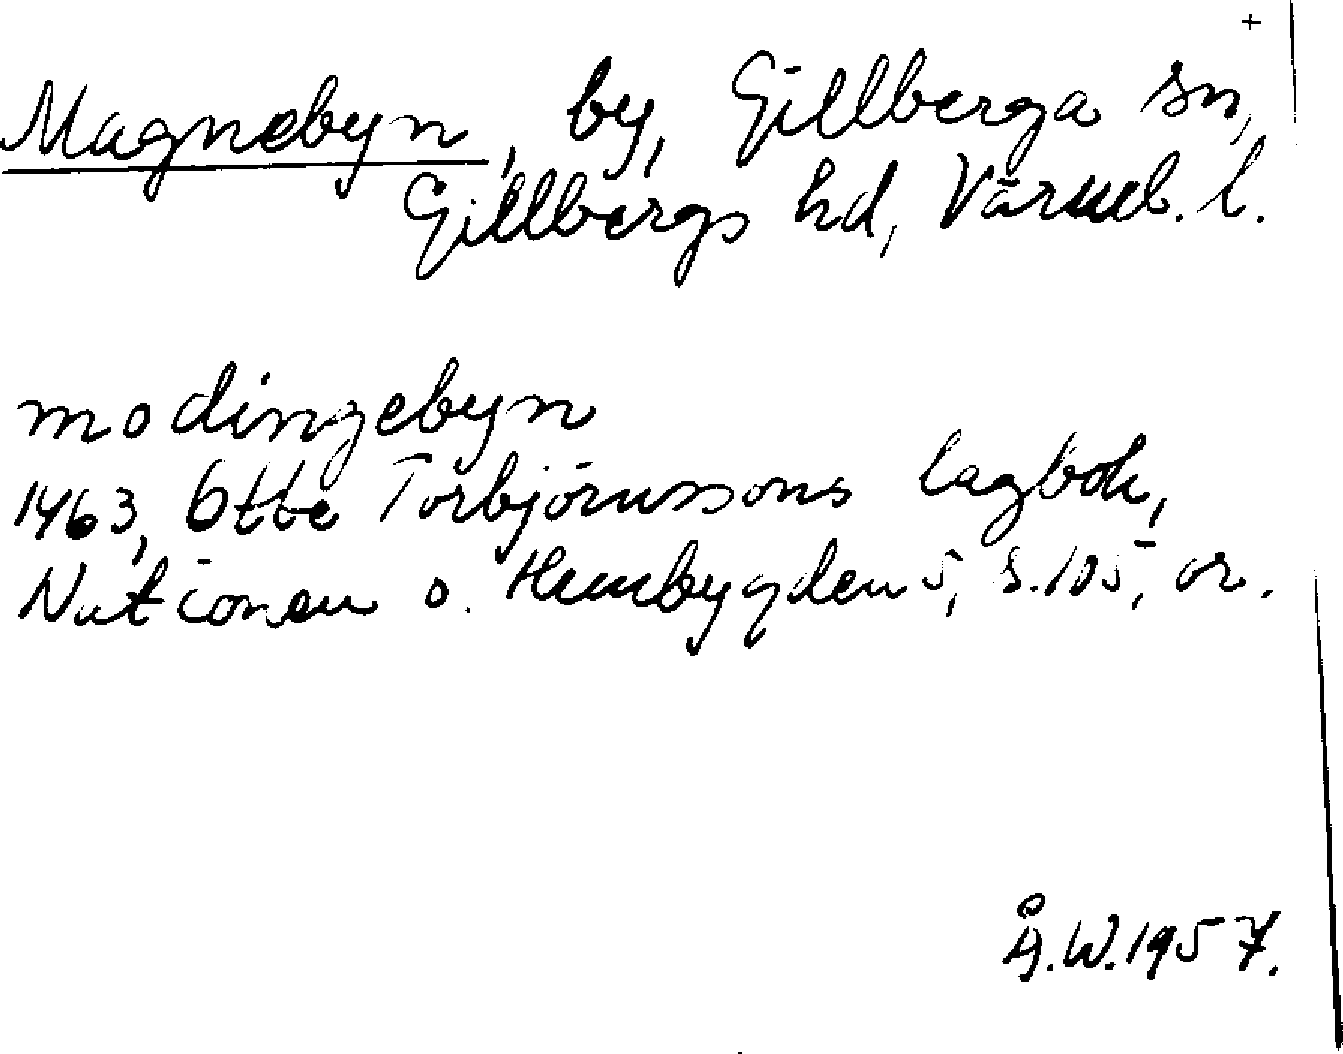 +
Magnebyn, by, Gillberga sn,
Gillbergs hd, Värml. l.
modingebyn
1463, Otte Torbjörnssons lagbok,
Nationen o. Hembygden 5, s. 105, or.
Å.W. 1957.